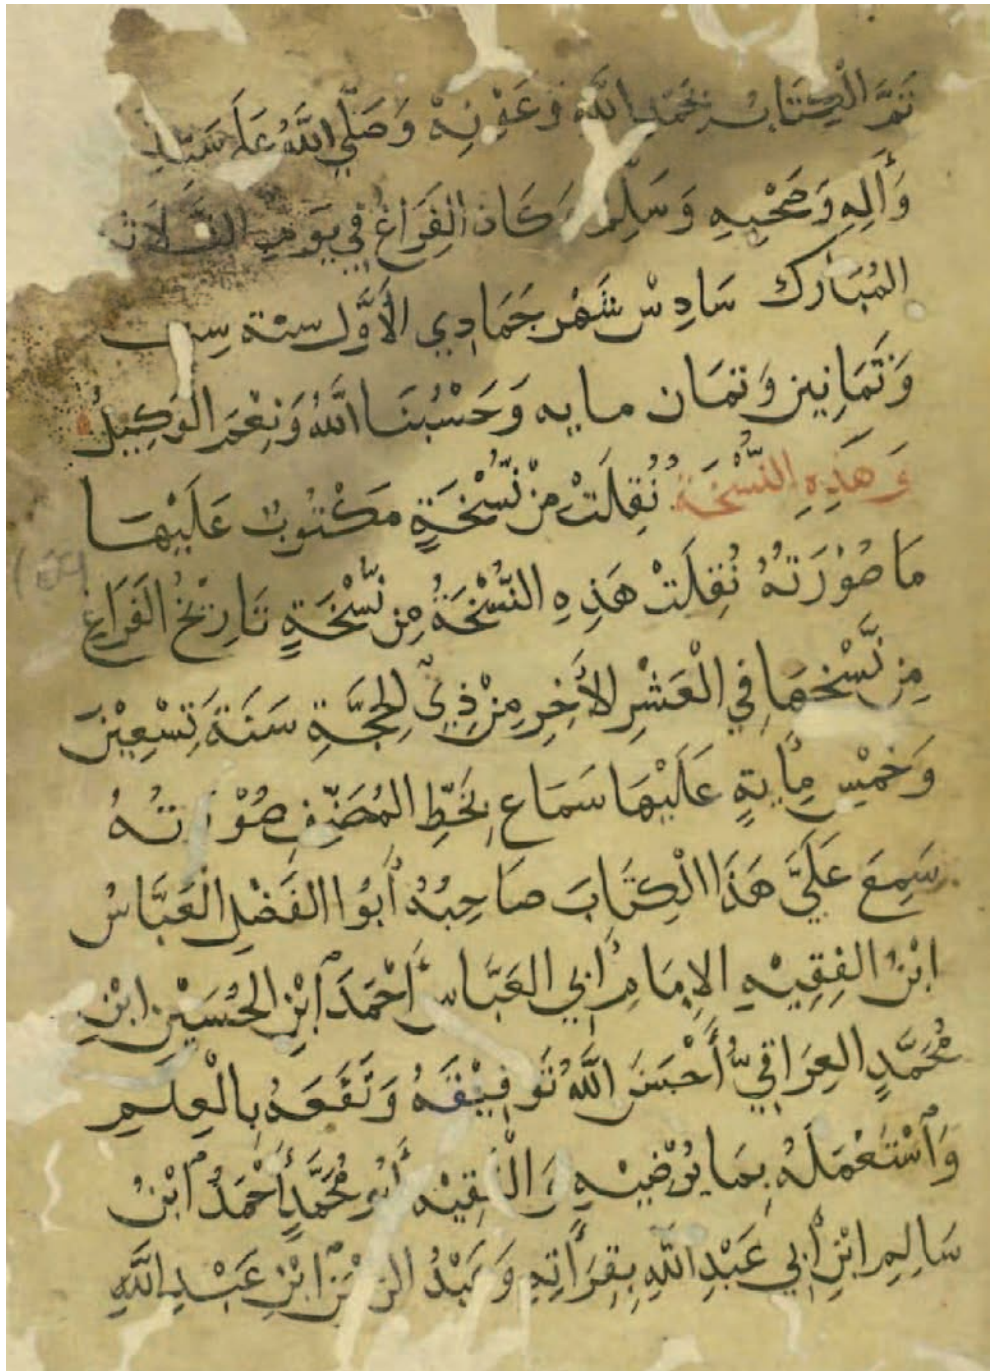 تَمَّ الْكِتَابُ بِحَمْدِ اللَّهِ وَعَوْنِهْ وَصَلَّي اللَّهُ عَلَى سَيِّدِ
وَأَلِهِ وَصَحْبِهِ وَسَلَّم وَكَانَ الفَرَاغُ فِي يَوْمِ الثَّلَاثَ
المُبَارَك سَادِسْ شَهْر جَمَادِي الأَوَّل سنة سِت
وَثَمَانِين وَثمَان مايه وَحَسْبُنَا اللَّهُ وَنِعْمَ الوَكِيلُ
وَهَذِهِ النُّسْخَة نُقِلَتْ مِنْ نُّسْخَةٍ مَكْتُوبٌ عَلَيْهَا
مَا صُوْرَتهُ نُقِلَتْ هَذِهِ النُّسْخَةُ مِن نُّسْخَةٍ تَارِيْخُ الفَرَاغِ
مِن نَّسْخِهَا فِي الْعَشْرِ الأَخِرِ مِنْ ذِي الحِجَّةِ سَنَةَ تِسْعِيْنَ
وَخَمْسِ مِايةٍ عَلَيْهَا سَمَاع بِخَطِّ المُصَنِّفِ صُوْرَتُهُ
سَمِعَ عَلَيَّ هَذَا الْكِتَابَ صَاحِبُهُ أَبُوا الفَضْلِ الْعَبَّاسُ
ابْنُ الفِقِيْهِ الإِمَامِ أَبِي العَبَّاس أَحْمَدَ ابْنِ الحُسَيْنِ ابْنِ
مُحَمَّدٍ العِرَاقِيُّ أَحْسَنَ اللَّهُ تَوفِيْقَهُ وَنَفَعَهُ بِالْعِلمِ
وَاسْتَعْمَلَهُ بِمَا يُرْضِيْهِ وَالْفَقِيْه أَبُو مُحَمَّدٍ أَحْمَدُ ابْنُ
سَالِمِ ابْنِ أَبِي عَبْدِ اللَّهِ بِقِرَأَتِهِ وَعَبْدُ ابْنِ عَبْدِ اللَّهِ